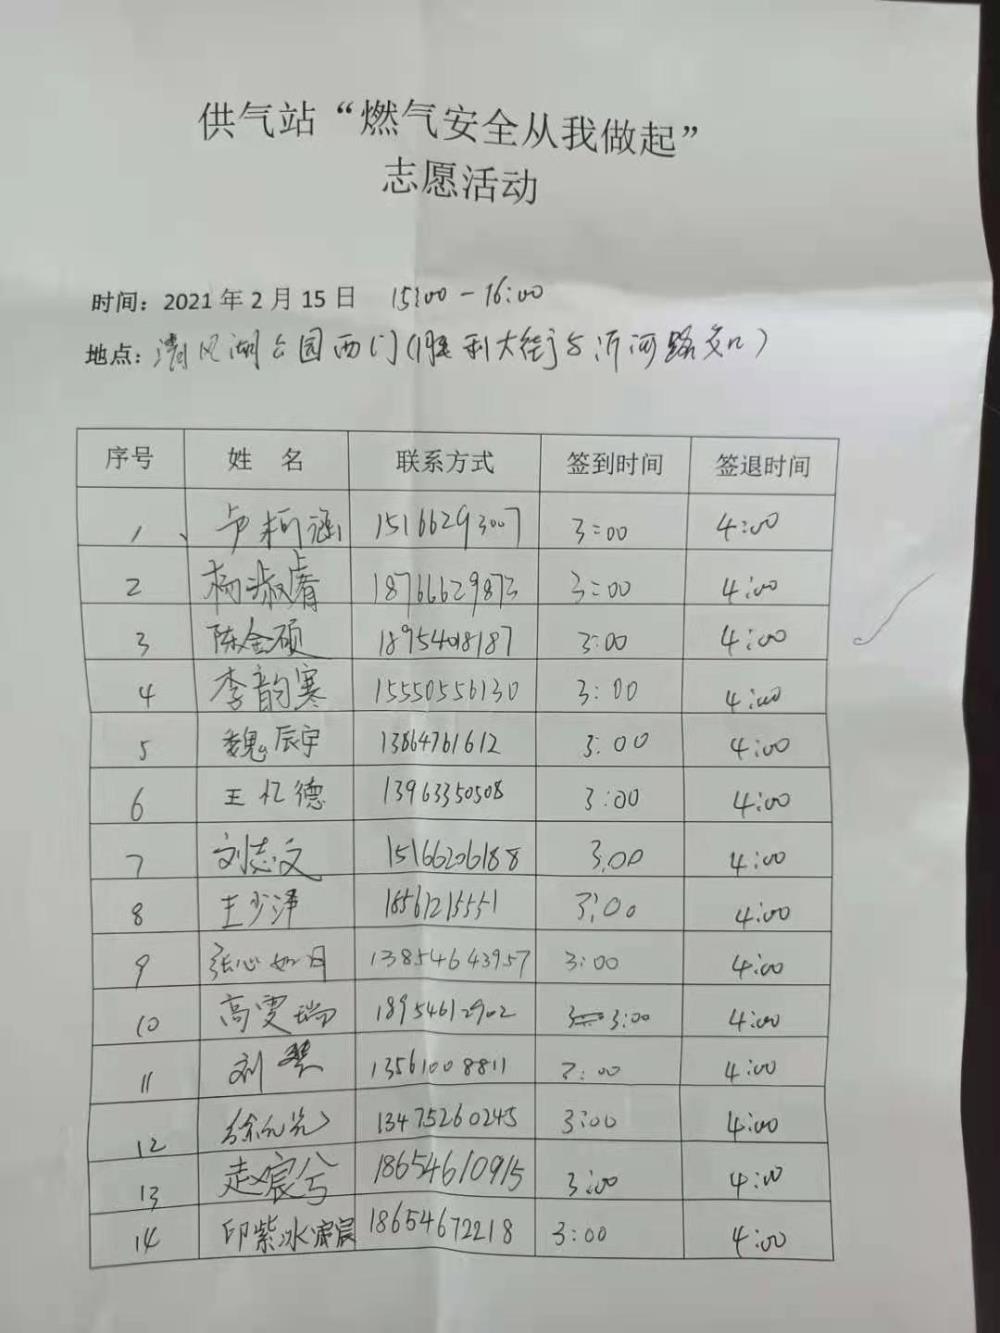 供气站“燃气安全从我做起”
志愿活动
时间：2021年2月15日 15:00-16:00
地点：清风湖公园西门(胜利大街与沂河路交口)
序号 姓 名 联系方式 签到时间 签退时间
1、 卢柯涵 15166293007 3:00 4:00
2 杨淑睿 18766629873 3:00 4:00
3 陈金硕 1895408187 3:00 4:00
4 李韵寒 15550556130 3:00 4:00
5 魏辰宇 13864761612 3:00 4:00
6 王忆德 13963350508 3:00 4:00
7 刘志文 15166206188 3.00 4:00
8 王少泽 18561215551 3:00 4:00
9 张心如月 13854643957 3:00 4:00
10 高雯瑞 18954612902 3:00 4:00
11 刘 13561008811 3:00 4:00
12 徐 13475260245 3:00 4:00
13 赵宸兮 18654610915 3:00 4:00
14 印紫冰 18654672218 3:00 4:00